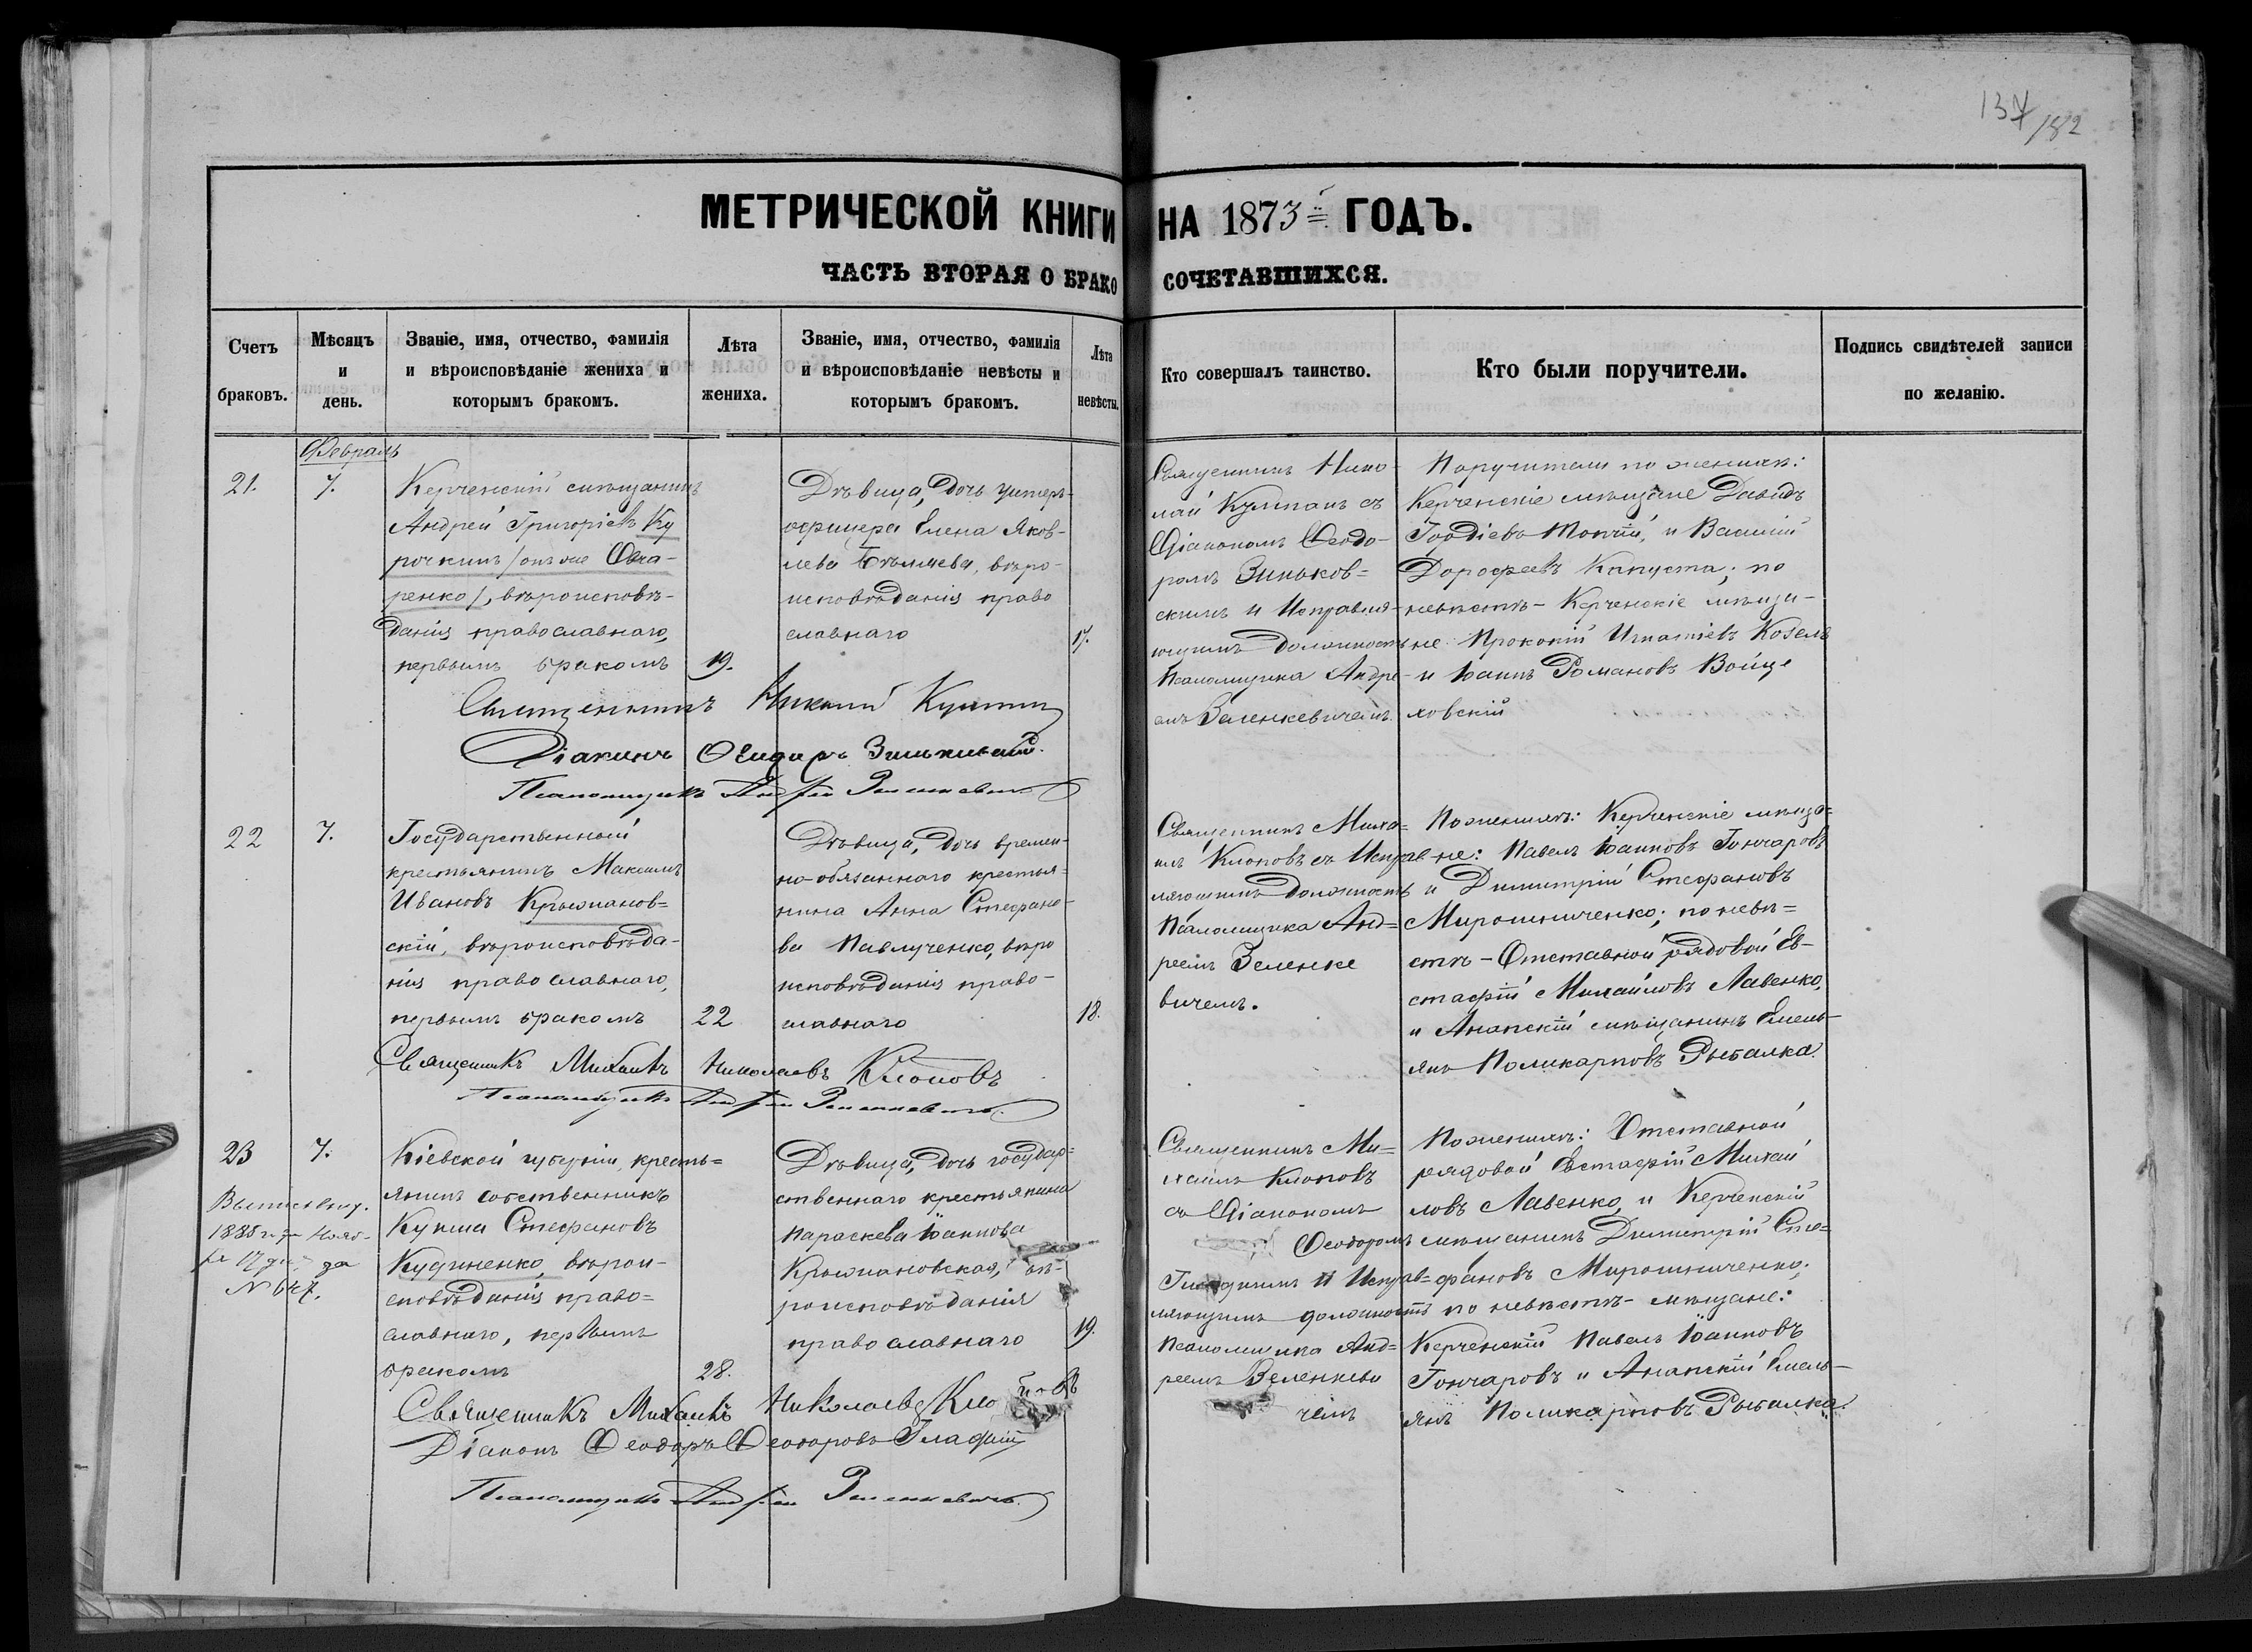 137/182
МЕТРИЧЕСКОЙ КНИГИ НА 1873й ГОДЪ.
ЧАСТЬ ВТОРАЯ О БРАКОСОЧЕТАВШИХСЯ.
Счетъ
браковъ.
Мѣсяцъ
и
день.
Званіе, имя, отчество, фамилія
и вѣроисповѣданіе жениха и
которымъ бракомъ.
Лѣта
жениха.
Званіе, имя, отчество, фамилія
и вѣроисповѣданіе невѣсты и
которымъ бракомъ.
Лѣта
невѣсты.
Кто совершалъ таинство.
Кто были поручители.
Подпись свидѣтелей записи
по желанію.
Февраль
21.
7.
Керченскій мѣщанинъ
Андрей Григоріевъ Ку
рочкинъ /онъ же Овча-
ренко/, вѣроисповѣ-
данія православнаго,
первымъ бракомъ
19.
Дѣвица, дочь унтеръ-
офицера Елена Яков-
лева Бѣляева, вѣро-
исповѣданія право
славнаго
17.
Священникъ Нико-
лай Кулпанъ съ
Діакономъ Ѳеодо-
ромъ Зиньков=
скимъ и Исправля-
ющимъ должность
Псаломщика Андре-
емъ Зеленкевичемъ.
Поручители по женихѣ:
Керченскіе мѣщане Давидъ
Гордіевъ Топчій, и Василій
Дорофеевъ Капуста; по
невѣстѣ - Керченскіе мѣща-
не Прокопій Игнатіевъ Козелъ
и Іоаннъ Романовъ Войце
ховскій
Священникъ Николай Кулпанъ
Діаконъ Ѳеодоръ Зиньковскій.
Псаломщикъ Андрей Зеленкевичъ
22
7.
Государственный
крестьянинъ Максимъ
Ивановъ Крыжанов=
скій, вѣроисповѣда-
нія православнаго,
первымъ бракомъ
22
Дѣвица, дочь времен-
но-обязаннаго крестья-
нина Анна Стефано-
ва Павлученко, вѣро
исповѣданія право-
славнаго
18.
Священникъ Миха=
илъ Клоповъ съ Исправ
ляющимъ должность
Псаломщика Анд=
реемъ Зеленке
вичемъ.
По женихѣ: Керченскіе мѣща=
не: Павелъ Іоанновъ Гончаровъ
и Димитрій Стефановъ
Мирошниченко; по невѣ=
стѣ - Отставной рядовой Ев-
стафій Михайловъ Лавенко,
и Анапскій мѣщанинъ Емель-
янъ Поликарповъ Рыбалка.
Священникъ Михаилъ Николаевъ Клоповъ
Псаломщикъ Андрей Зеленкевичъ.
23
7.
1885 года Нояб-
ря 17 дня за
№ 647.
Кіевской губерніи, кресть=
янинъ собственникъ
Купша Стефановъ
Кудиненко, вѣрои-
сповѣданія право=
славнаго, первымъ
бракомъ
28.
Дѣвица, дочь государ=
ственнаго крестьянина
Параскева Іоаннова
Крыжановская, вѣ-
роисповѣданія
православнаго
19.
Священникъ Ми=
хаилъ Клоповъ
съ Діакономъ
Ѳеодоромъ
Гладкимъ и Исправ=
ляющимъ должность
Псаломщика Анд=
реемъ Зеленкеви
чемъ
По женихѣ: Отставной
рядовой Евстафій Михай
ловъ Лавенко, и Керченскій
мѣщанинъ Димитрій Сте=
фановъ Мирошниченко;
по невѣстѣ - мѣщане:
Керченскій Павелъ Іоанновъ
Гончаровъ и Анапскій Емель-
янъ Поликарповъ Рыбалка.
Священникъ Михаилъ Николаевъ Клоповъ
Діаконъ Ѳеодоръ Ѳеодоровъ Гладкій
Псаломщикъ Андрей Зеленкевичъ.